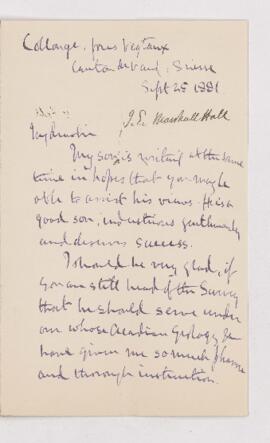 Collonge, sous Veytaux
Canton de Vaud, Suisse
Sept 25 1881
J. E. Marshall Hall
My dear Sir
My son is writing at the same
time in hopes that you may be
able to assist his views. He is a
good son, industrious gentlemanly
and deserves success.
I should be very glad, if
you are still head of the Survey
that he should serve under
one whose Acadian Geology &c
have given me so much pleasure
and thorough instruction.